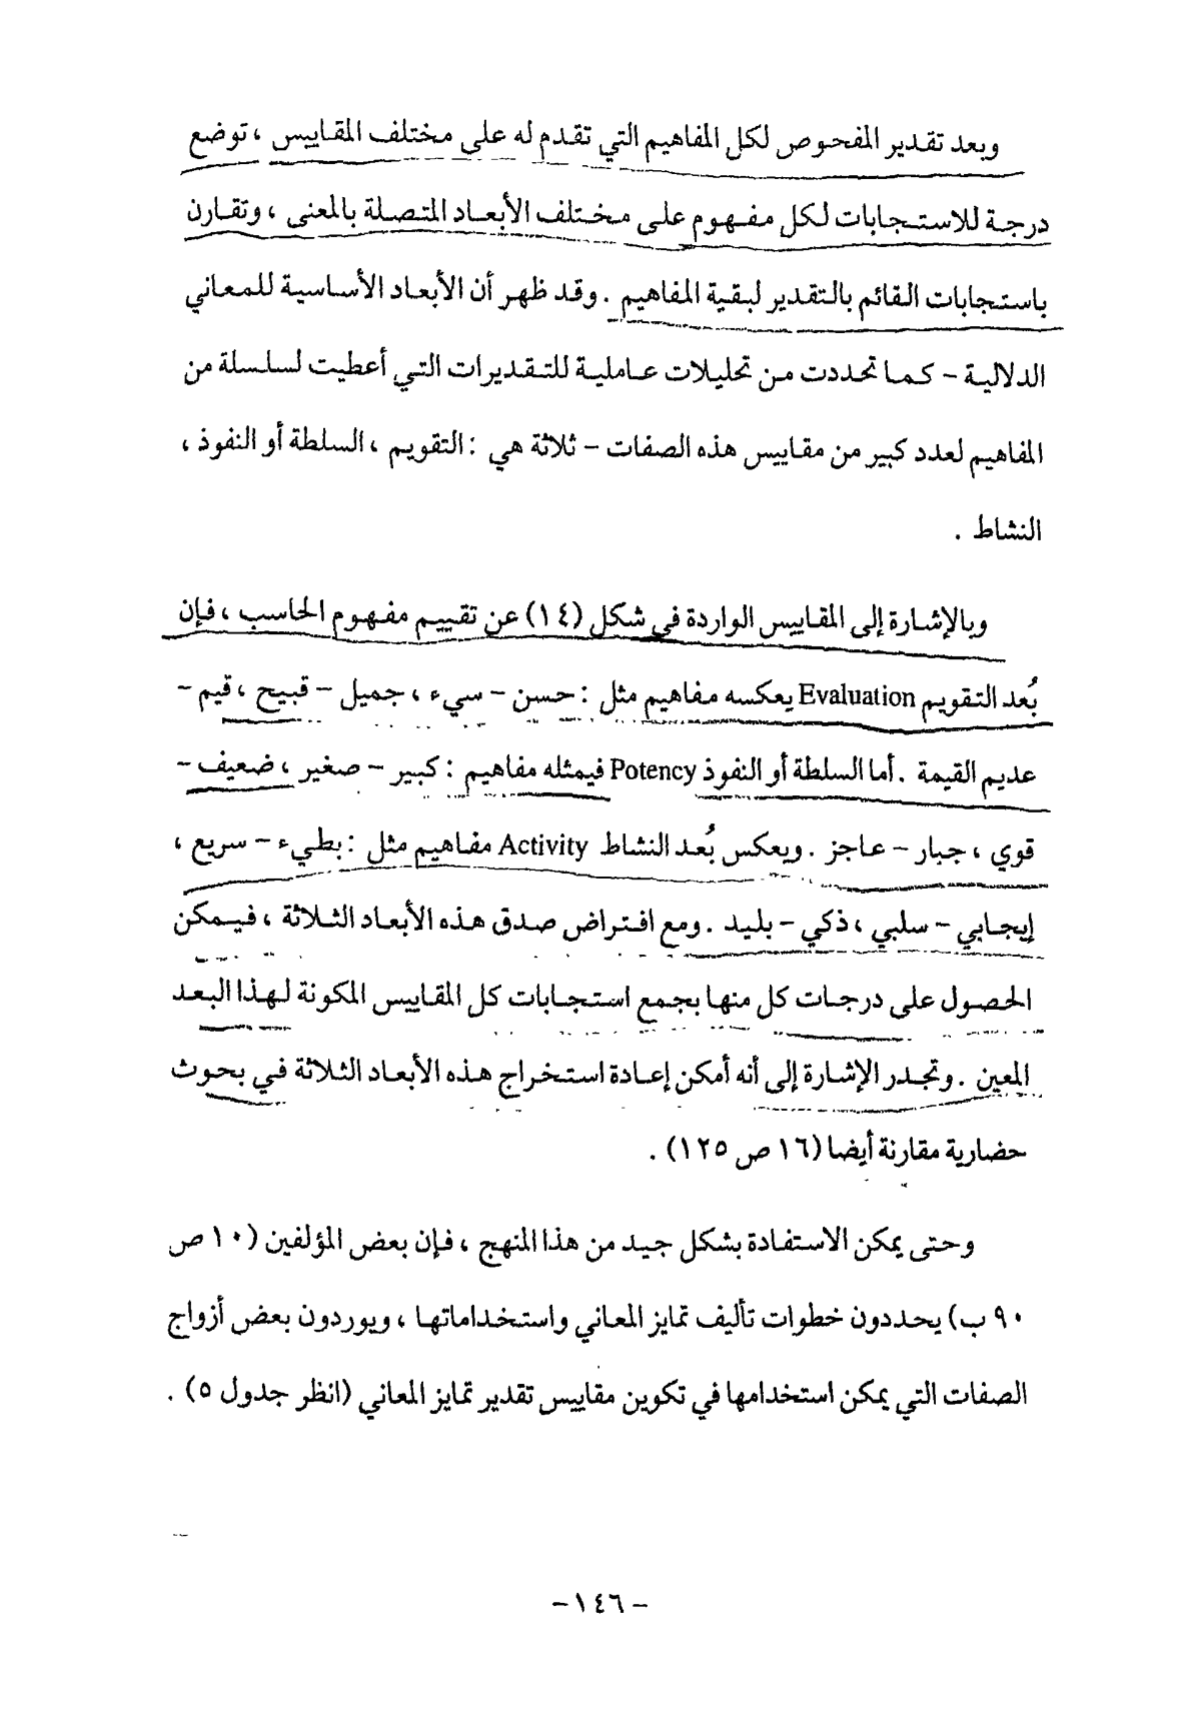 وبعد تقدير المفحوص لكل المفاهيم التي تقدم له على مختلف المقاييس ، توضع
درجة للاستجابات لكل مفهوم على مختلف الأبعاد المتصلة بالمعنى ، وتقارن
باستجابات القائم بالتقدير لبقية المفاهيم . وقد ظهر أن الأبعاد الأساسية للمعاني
الدلالية – كما تحددت من تحليلات عاملية للتقديرات التي أعطيت لسلسلة من
المفاهيم لعدد كبير من مقاييس هذه الصفات – ثلاثة هي : التقويم ، السلطة أو النفوذ ،
النشاط .
وبالإشارة إلى المقاييس الواردة في شكل (١٤) عن تقييم مفهوم الحاسب ، فإن
بُعد التقويم Evaluation يعكسه مفاهيم مثل : حسن – سيء ، جميل – قبيح ، قيم –
عديم القيمة . أما السلطة أو النفوذ Potency فيمثله مفاهيم : كبير – صغير ، ضعيف –
قوي ، جبار – عاجز . ويعكس بُعد النشاط Activity مفاهيم مثل : بطيء – سريع ،
إيجابي – سلبي ، ذكي – بليد . ومع افتراض صدق هذه الأبعاد الثلاثة ، فيمكن
الحصول على درجات كل منها بجمع استجابات كل المقاييس المكونة لهذا البعد
المعين . وتجدر الإشارة إلى أنه أمكن إعادة استخراج هذه الأبعاد الثلاثة في بحوث
حضارية مقارنة أيضا (١٦ ص ١٢٥) .
وحتى يمكن الاستفادة بشكل جيد من هذا المنهج ، فإن بعض المؤلفين (١٠ ص
٩٠ ب) يحددون خطوات تأليف تمايز المعاني واستخداماتها ، ويوردون بعض أزواج
الصفات التي يمكن استخدامها في تكوين مقاييس تقدير تمايز المعاني (انظر جدول ٥) .
– ١٤٦ –